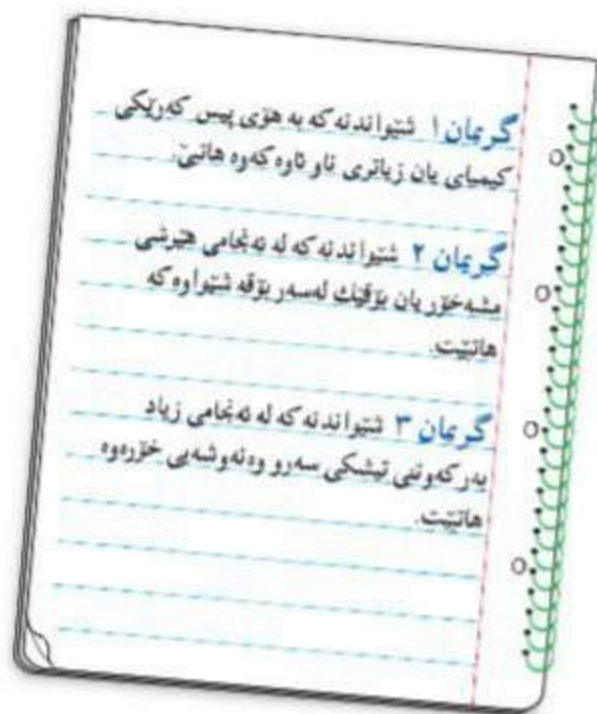 گریمان ١ شێواندنه که به هۆی پیس کەرێکی
کیمیای یان زیاتری ناو ئاوه کەوه هاتبێ.
گریمان ٢ شێواندنه که له ئەنجامی هێرشی
مشەخۆر یان بۆقێك لەسەر بۆقه شێواوه که
هاتبێت.
گریمان ٣ شێواندنه که له ئەنجامی زیاد
بەرکەوتنی تیشکی سەرو وەنەوشەیی خۆرەوه
هاتبێت.